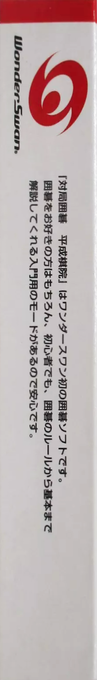 WonderSwan
「対局囲碁　平成棋院」はワンダースワン初の囲碁ソフトです。
囲碁をお好きの方はもちろん、初心者でも、囲碁のルールから基本まで
解説してくれる入門用のモードがあるので安心です。